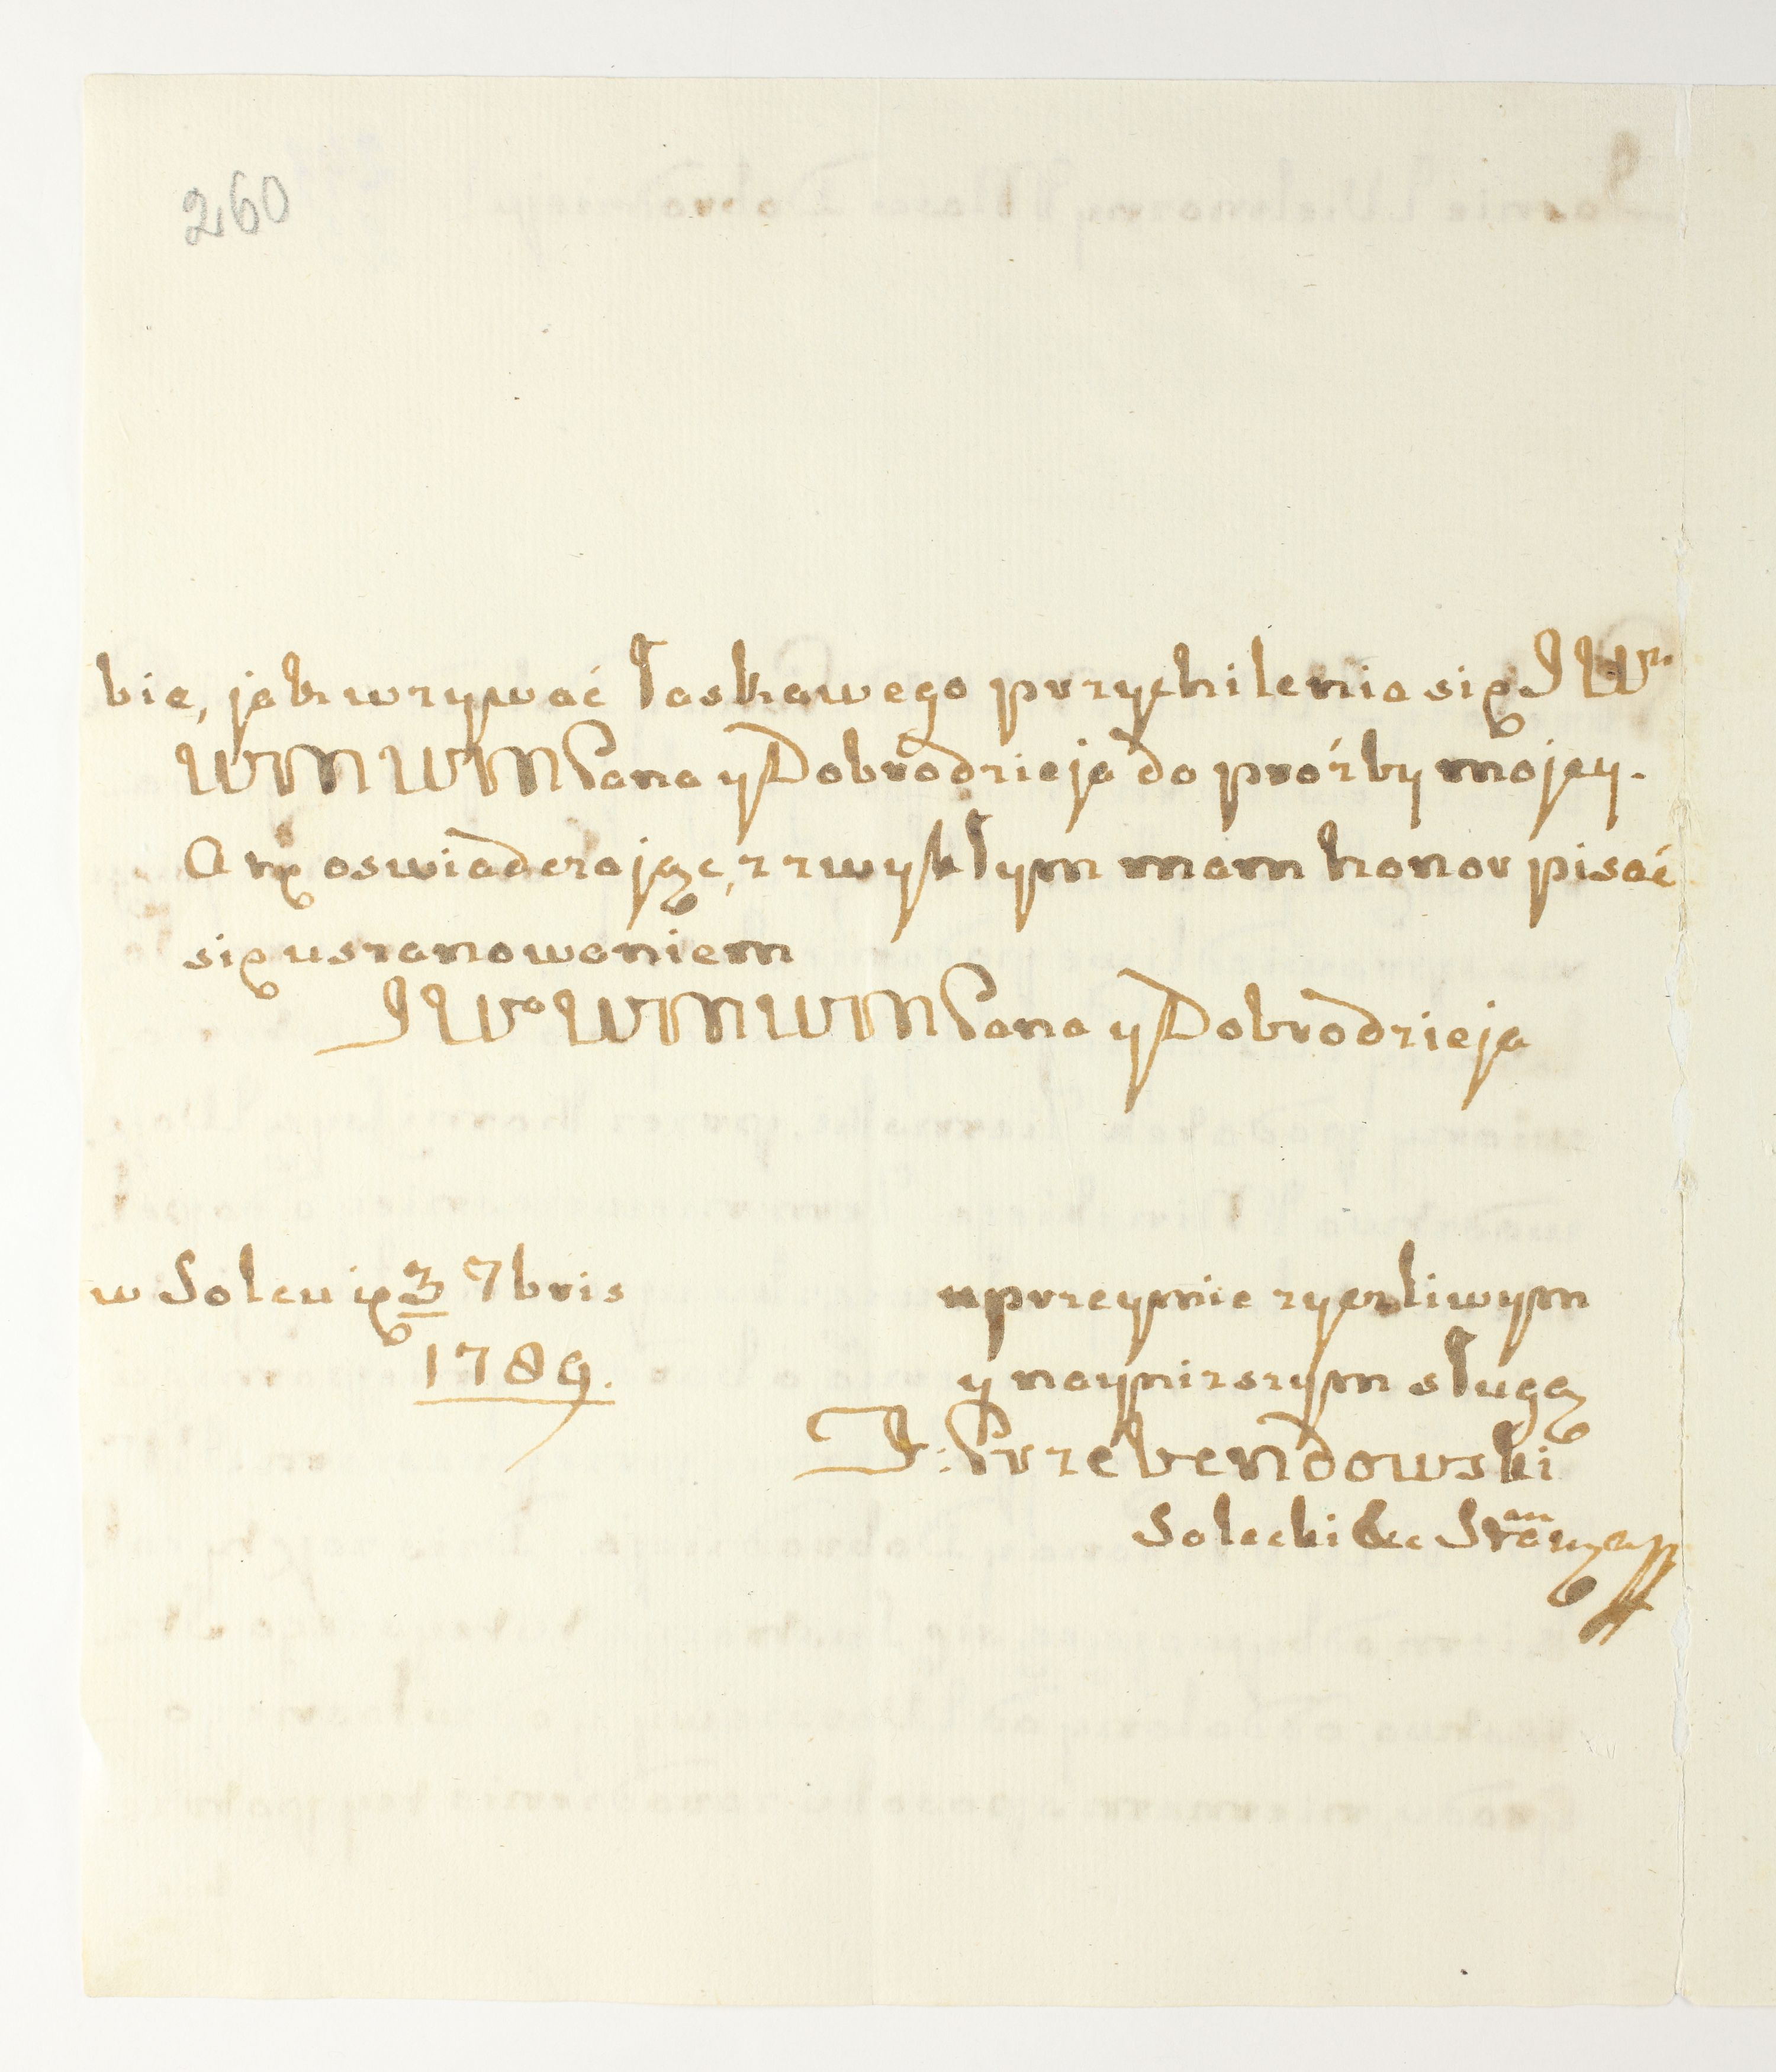 260
bie, jak wzywać łaskawego przychilenia się JW°
WM WM Pana y Dobrodzieja do próźby mojey.
A tę oswiadczając, z zwykłym mam honor pisać
się uszanowaniem
JW° WM WM Pana y Dobrodzieja
w Solcu 3 7bris
1789.
uprzeymie zyczliwym
y naynizszym sługą
J: Przebendowski
Solecki &c Staa